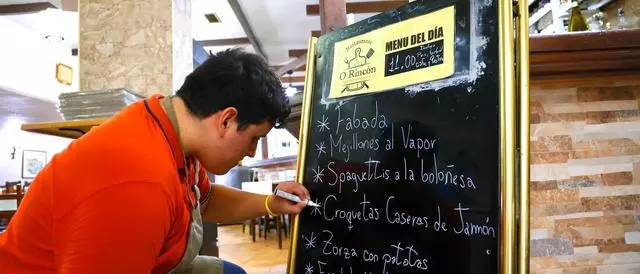 Restaurante
O Rincón
MENU DEL DÍA
11,00
* Fabada
* Mejillones al Vapor
* Spaguettis a la boloñesa
* Croquetas Caseras de Jamón
* Zorza con patatas